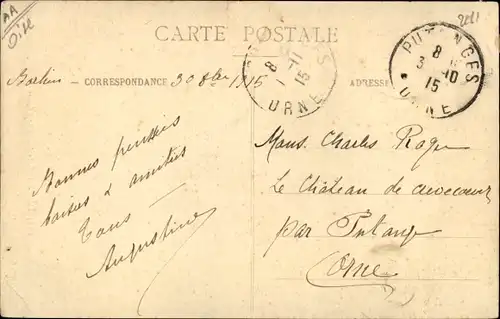 AA
Oise
CARTE POSTALE
CORRESPONDANCE
30 8bre 1915
ADRESSE
PUTANGES
8
3 10
15
ORNE
8
11
15
ORNE
Bonnes pensées
baisers & amitiés
Tous
Augustine
Mons. Charles Roger
Le Château de
par Putange
Orne